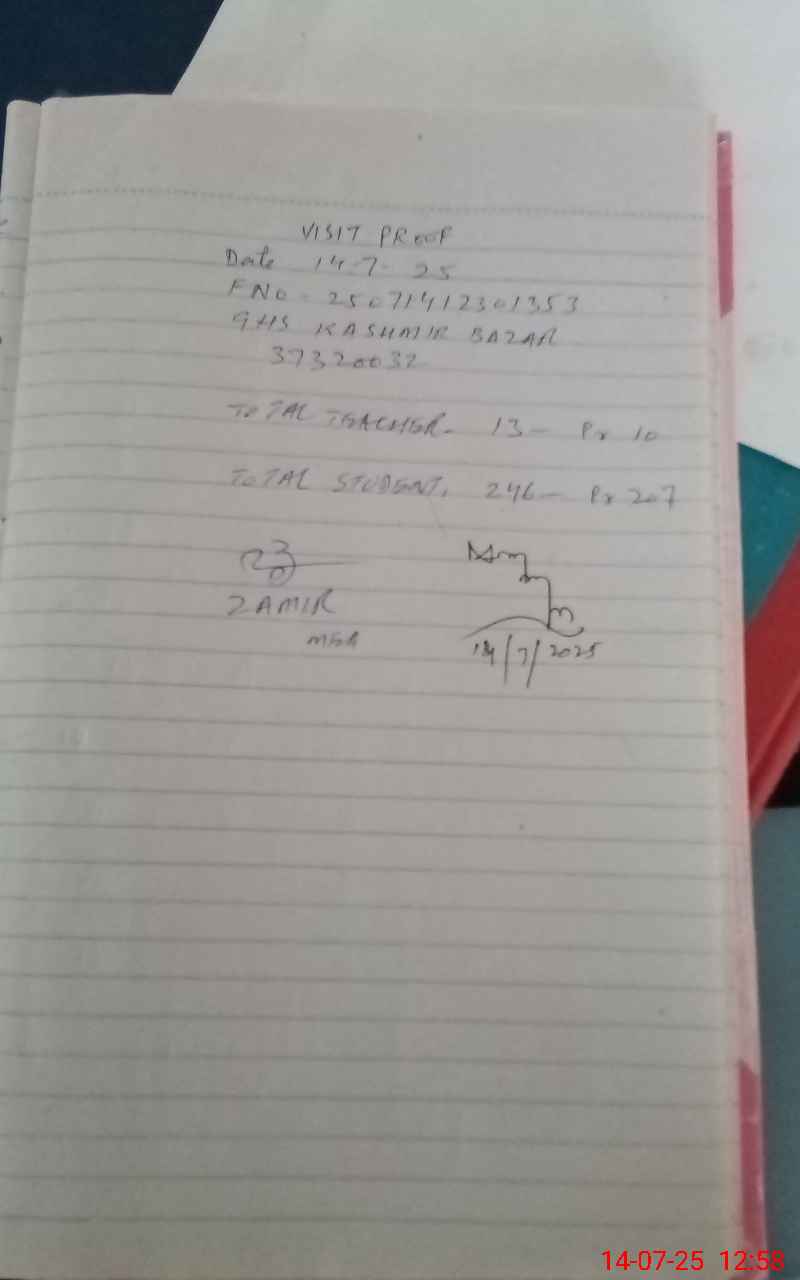 VISIT PROOF
Date 14-7-25
FNO - 25071412301353
GHS KASHMIR BAZAR
37320032
TOTAL TEACHER- 13- Pr 10
TOTAL STUDENT. 246- Pr 207
ZAMIR
MEA
14/7/2025
14-07-25 12:58